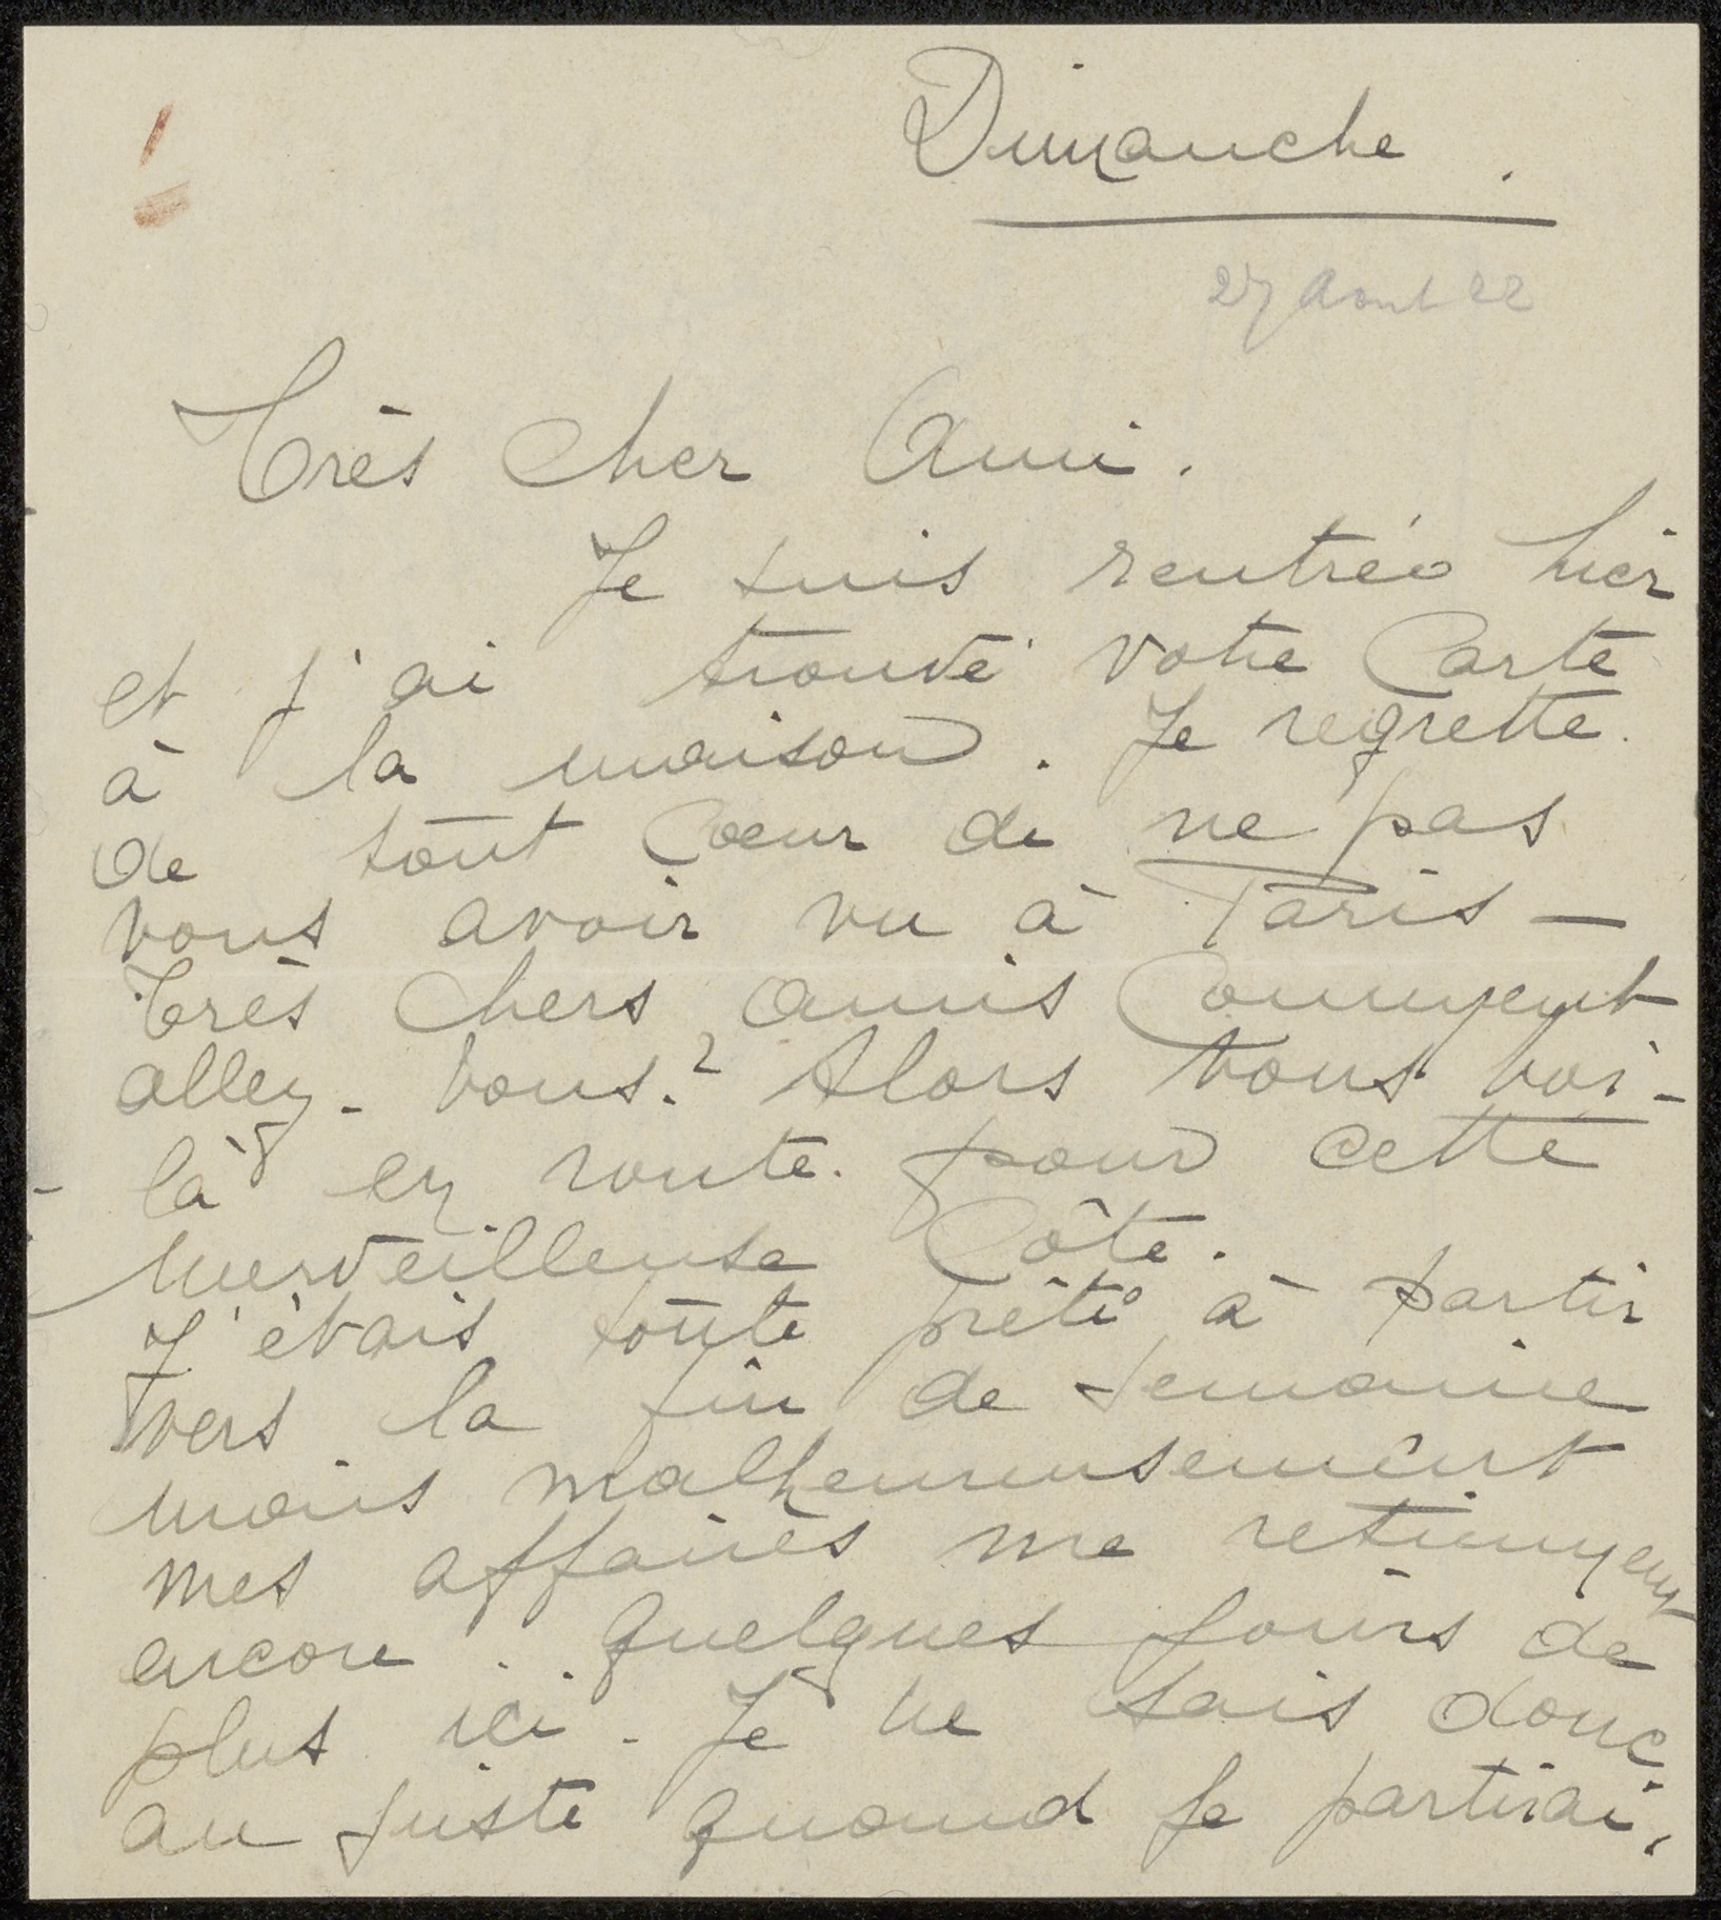 Dimanche.
27 Aout 22
Très cher Ami.
Je suis rentrée hier
et j'ai trouvé votre Carte
à la maison. Je regrette.
de tout Coeur de ne pas
vous avoir vu à Paris —
Très chers amis Comment
allez-vous? Alors vous voi-
là en route. pour cette
merveilleuse Côte.
J'étais toute prête à partir
vers la fin de semaine
mais malheureusement
mes affaires me retiennent
encore. quelques jours de
plus ici. Je ne sais donc
au juste quand je partirai.